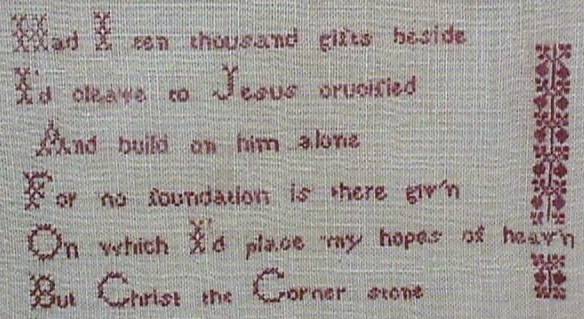 Had I ten thousand gifts beside
I'd cleave to Jesus crucified
And build on him alone
For no foundation is there giv'n
On which I'd place my hopes of heav'n
But Christ the Corner stone